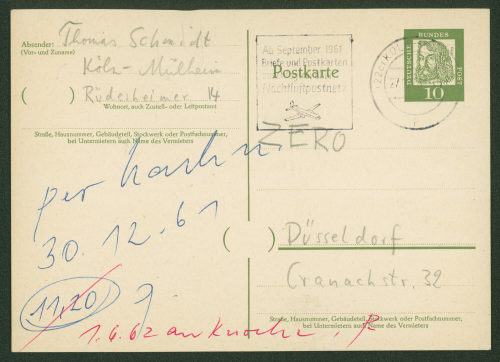 Absender: Thomas Schmidt
(Vor- und Zuname)
Köln-Mülheim
( ) Rüdesheimer 14
Wohnort, auch Zustell- oder Leitpostamt
Straße, Hausnummer, Gebäudeteil, Stockwerk oder Postfachnummer,
bei Untermietern auch Name des Vermieters
per
30.12.61
11,20
1.4.62 an
Ab September 1961
Briefe und Postkarten
Nachtluftpostnetz
Postkarte
DEUTSCHE BUNDESPOST
10
ZERO
( ) Düsseldorf
Cranachstr. 32
Straße, Hausnummer, Gebäudeteil, Stockwerk oder Postfachnummer,
bei Untermietern auch Name des Vermieters